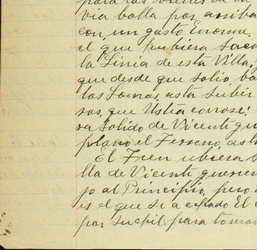 para los
via balta por arriba
con, un gasto Enorme,
el que hubiera Saca
la Linia de esta Villa,
que desde que Salio, ba
las Lomas, asta Subir
sos, que Ustia conose!
ra Salido de Vicente que
plano el Terreno, asta
El Tren ubiera s
lla de Vicente queren
jo al Principio, pero
es el que Se a El
por para tomar